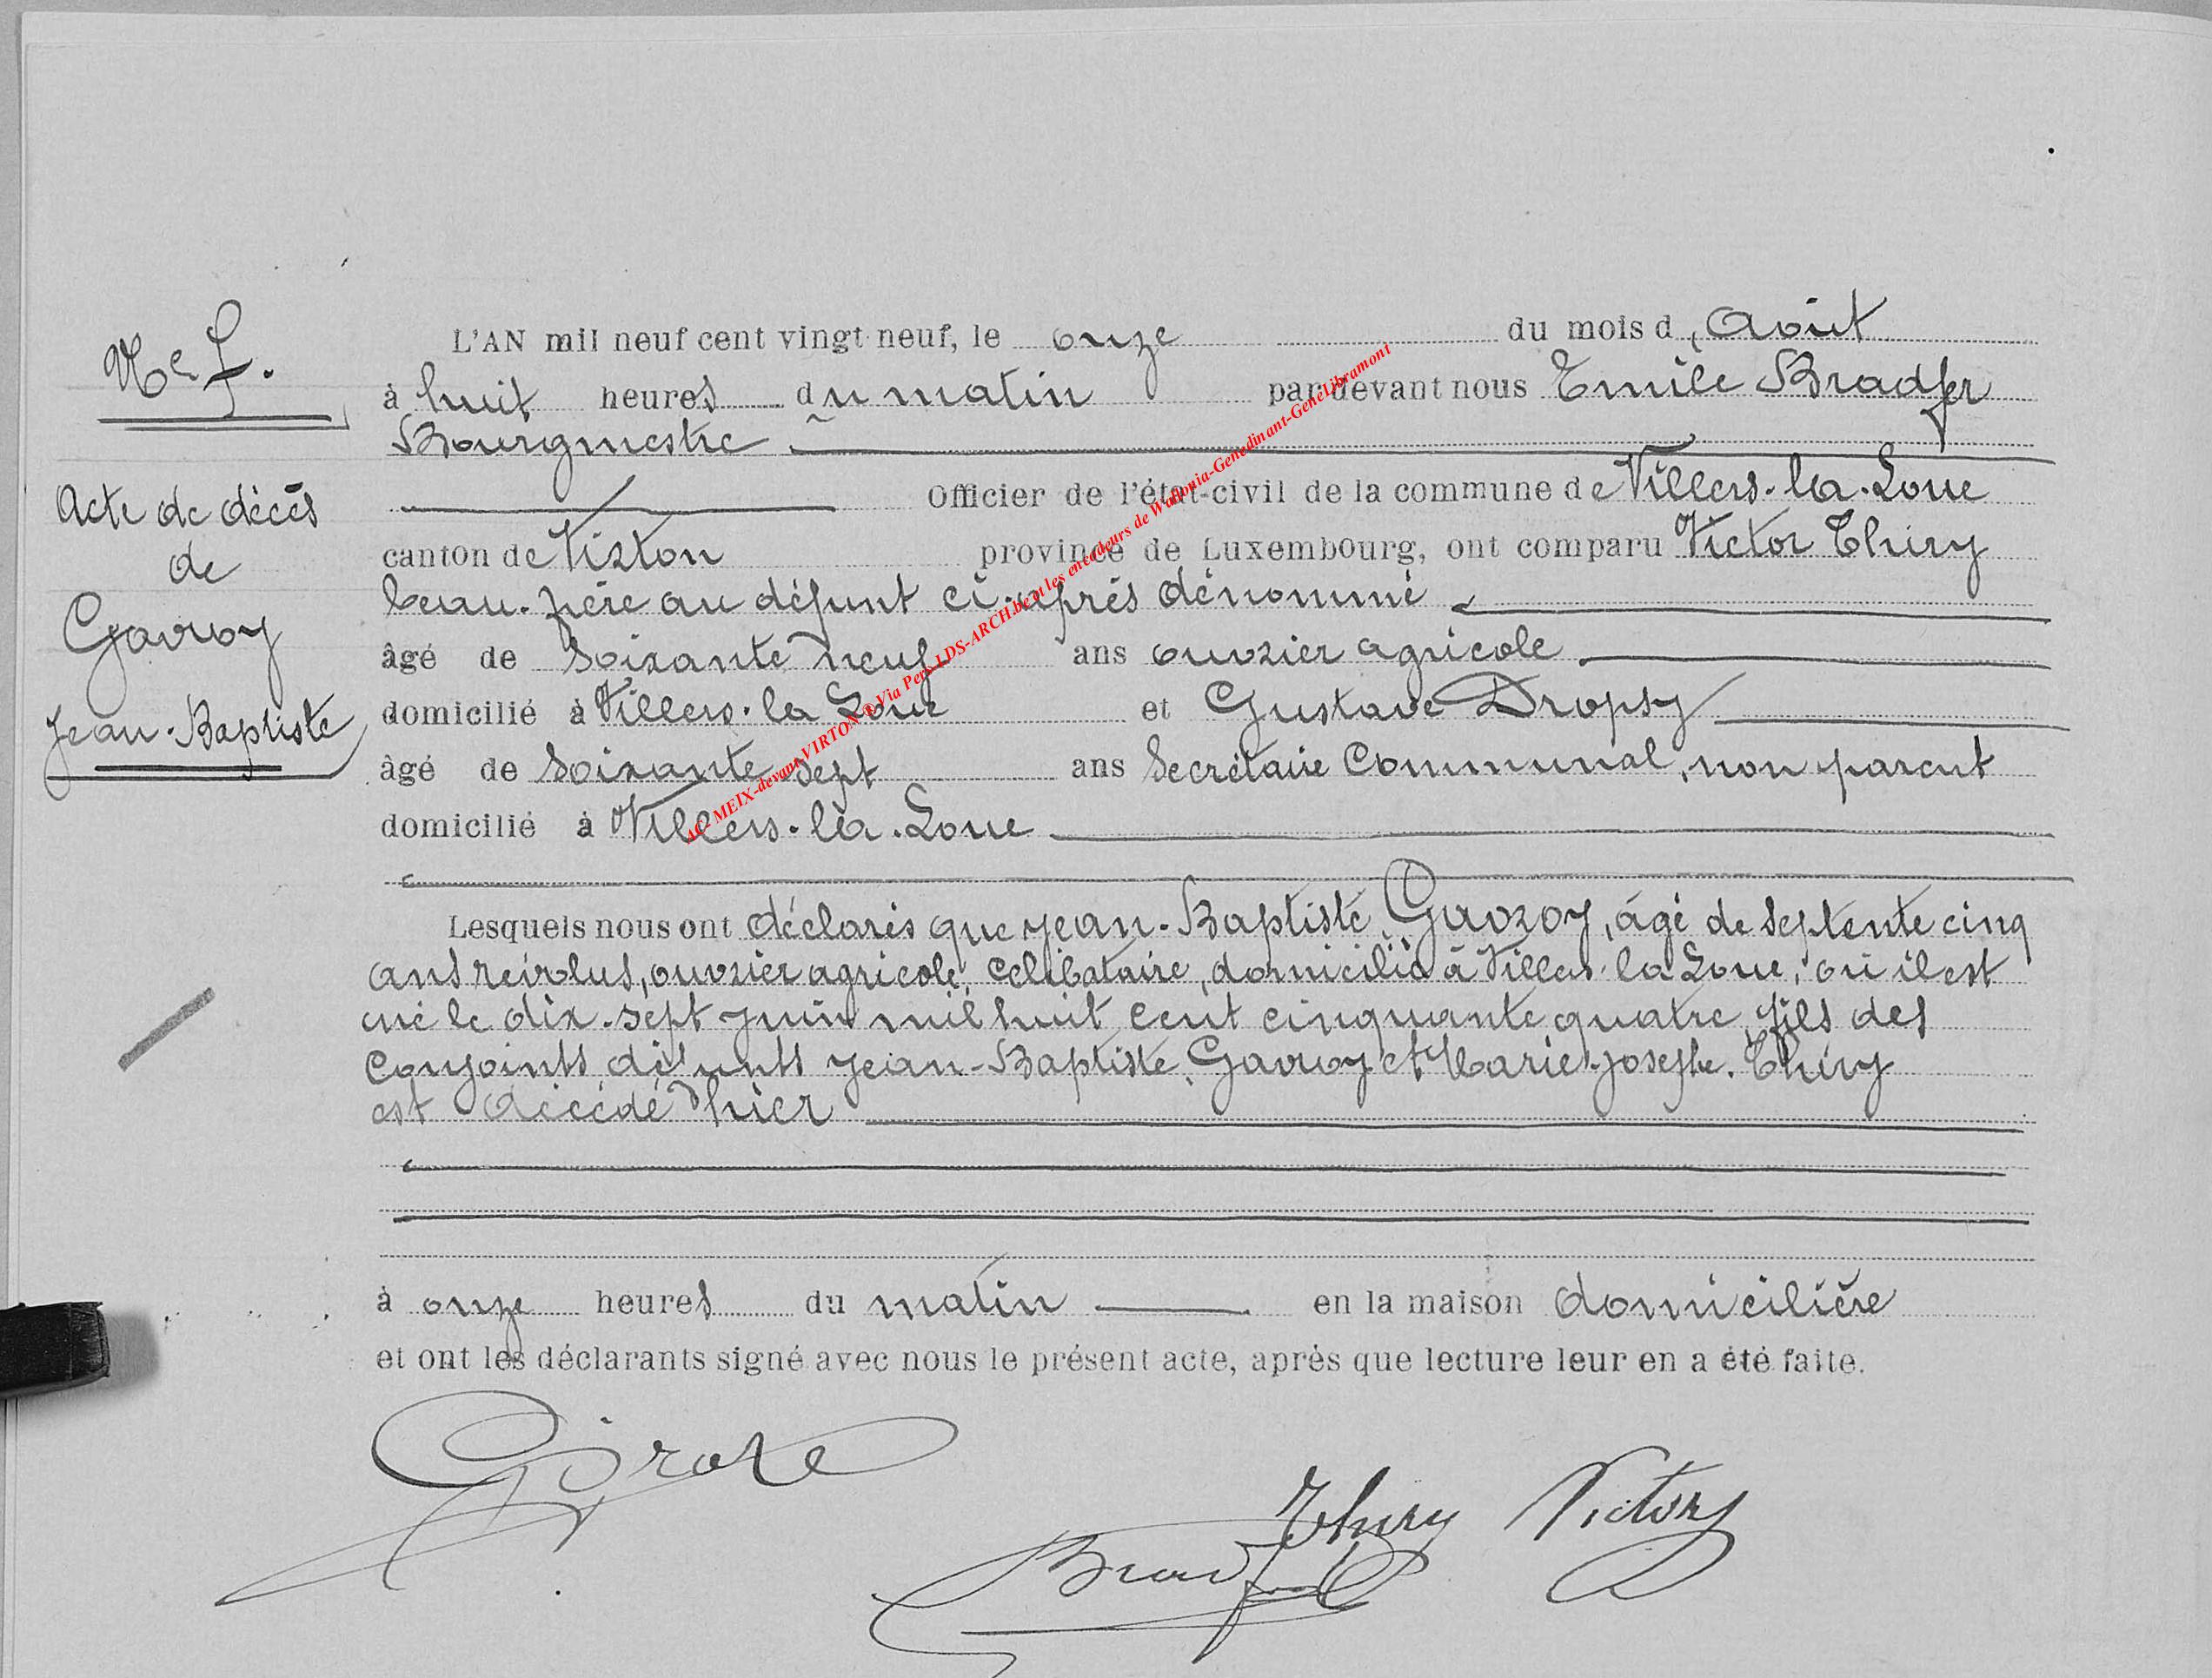 L'AN mil neuf cent vingt neuf, le onze du mois d'Août
à huit heures du matin par devant nous Emile Bradfer
Bourgmestre
Officier de l'état-civil de la commune de Villers-la-Loue
canton de Virton province de Luxembourg, ont comparu Victor Thiry
beau-frère au défunt ci-après dénommé
âgé de soixante neuf ans ouvrier agricole
domicilié à Villers-la Loue et Gustave Dropsy
âgé de soixante-sept ans Secrétaire Communal, non parent
domicilié à Villers-la-Loue
Lesquels nous ont déclarés que Jean-Baptiste Gavroy, âgé de septente cinq
ans révolus, ouvrier agricole, célibataire, domicilié à Villers-la Loue, où il est
né le dix-sept juin mil huit cent cinquante quatre, fils des
conjoints défunts Jean-Baptiste Gavroy et Marie-Josephe Thiry
est décédé hier
à onze heures du matin en la maison domicilière
et ont les déclarants signé avec nous le présent acte, après que lecture leur en a été faite.
Thiry Victor
Bradfer
Acte de décès
de
Gavroy
Jean-Baptiste
AC- MEIX-devant-VIRTON Via Pers LDS-ARCH.be et les encodeurs de Wallonia-Genedinant-GeneLibramont